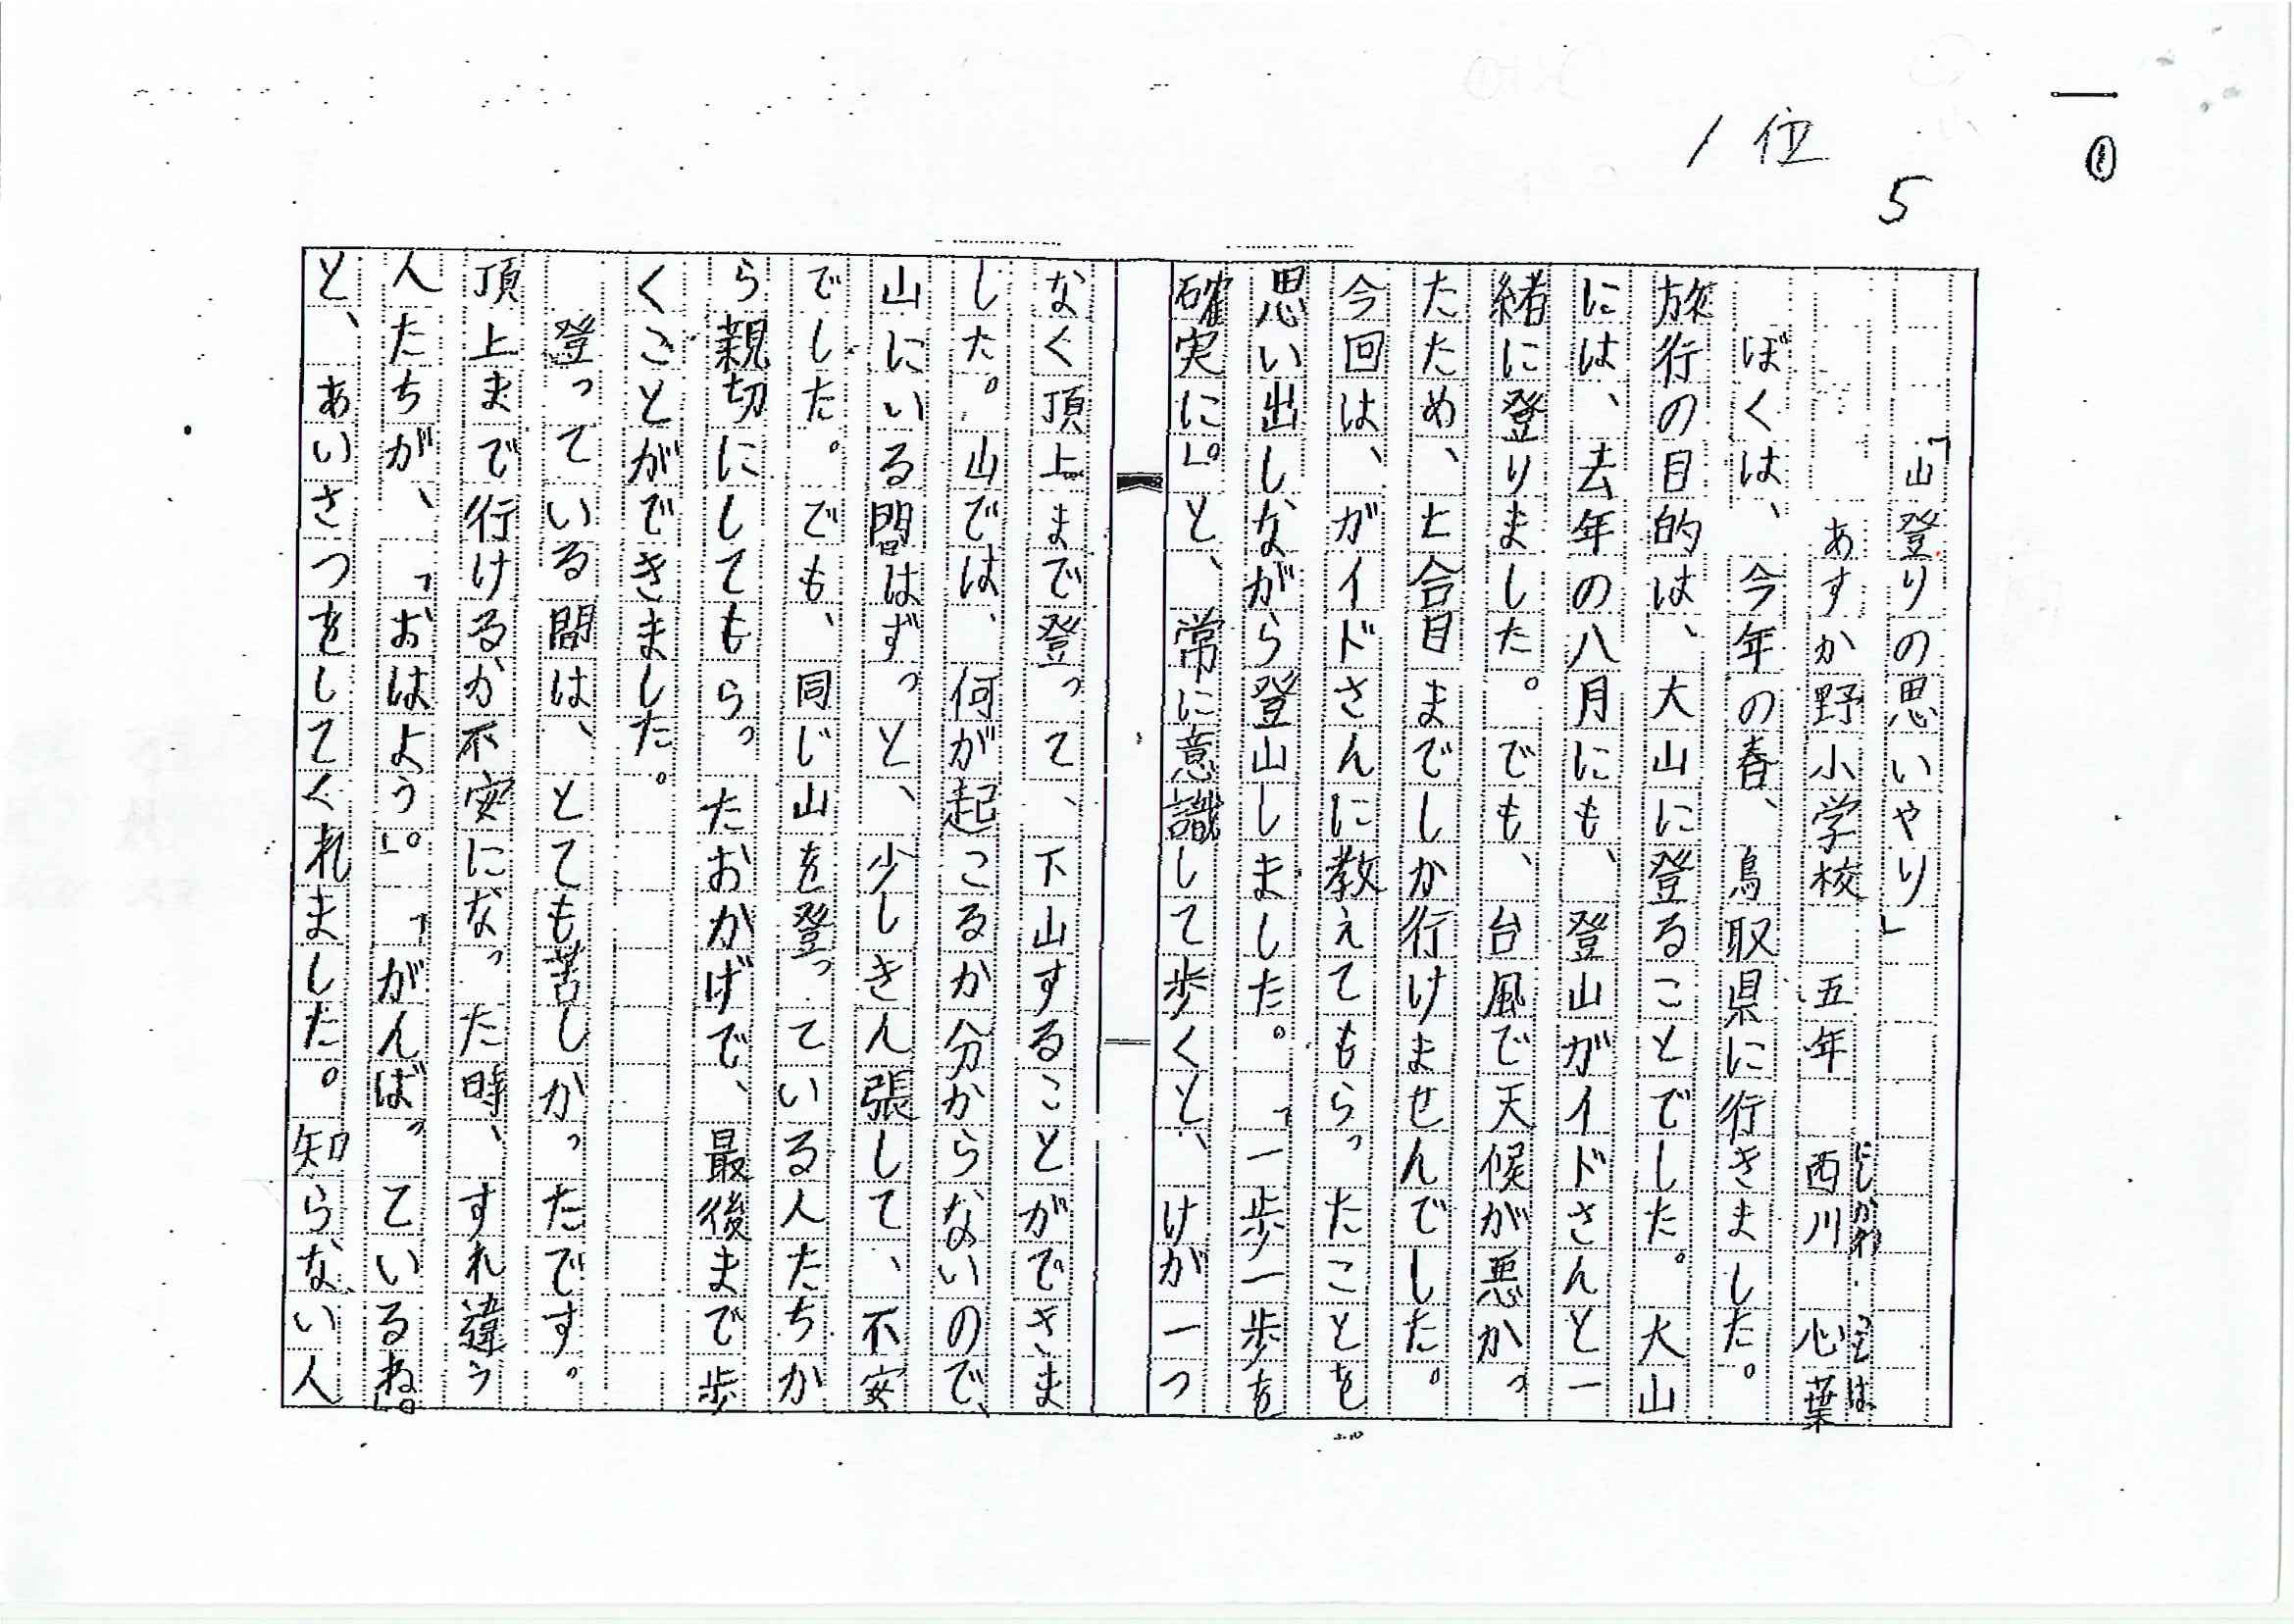 ①
1位
5
「山登りの思いやり」
あすか野小学校 五年 西川 心葉
にしかわ ここは
ぼくは、今年の春、鳥取県に行きました。
旅行の目的は、大山に登ることでした。大山
には、去年の八月にも、登山ガイドさんと一
緒に登りました。でも、台風で天候が悪かっ
たため、七合目までしか行けませんでした。
今回は、ガイドさんに教えてもらったことを
思い出しながら登山しました。「一歩一歩を
確実に。」と、常に意識して歩くと、けが一つ
なく頂上まで登って、下山することができま
した。山では、何が起こるか分からないので、
山にいる間はずっと、少しきん張して、不安
でした。でも、同じ山を登っている人たちが
ら親切にしてもらったおかげで、最後まで歩
くことができました。
登っている間は、とても苦しかったです。
頂上まで行けるか不安になった時、すれ違う
人たちが、「おはよう。」「がんばっているね。」
と、あいさつをしてくれました。知らない人